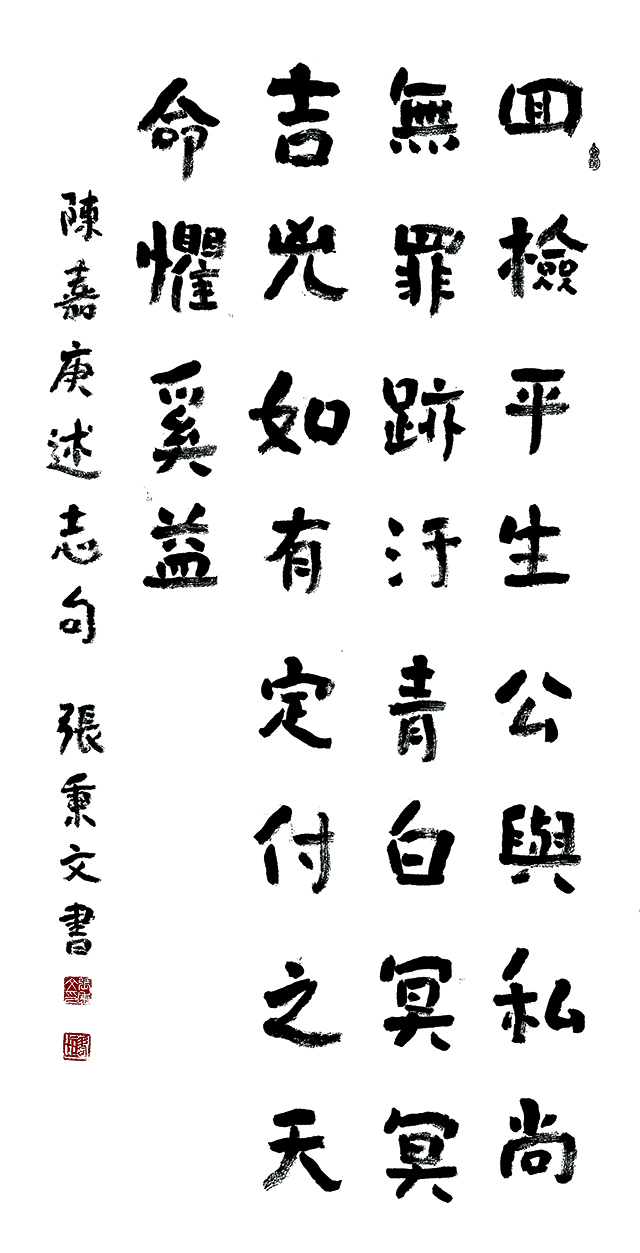 回檢平生公與私尚
無罪跡汙青白冥冥
吉兇如有定付之天
命懼奚益
陳嘉庚述志句 張秉文書